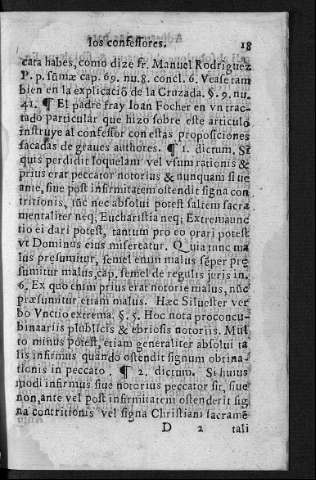 los confessores. 18
cara habes, como dize fr. Manuel Rodriguez
P. p. sũmæ cap. 69. nu. 8. concl. 6. Vease tam
bien en la explicaciõ de la Cruzada. §. 9. nu.
41. ¶ El padre fray Ioan Focher en vn trac-
tado particular que hizo sobre este articulo
instruye al confessor con estas proposiciones
sacadas de graues authores. ¶ 1. dictum. Si
quis perdidit loquelam vel vsum rationis &
prius erat peccator notorius & nunquam siue
ante, siue post infirmitatem ostendit signa con
tritionis, tũc nec absolui potest saltem sacra
mentaliter neq; Eucharistia neq; Extremaunc
tio ei dari potest, tantum pro eo orari potest
vt Dominus eius misereatur. Quia tunc ma
lus presumitur, semel enim malus sẽper prę
sumitur malus, cap. semel de regulis juris in.
6. Ex quo enim prius erat notorie malus, nũc
præsumitur etiam malus. Hæc Siluester ver
bo Vnctio extrema. §. 5. Hoc nota proconcu-
binaariis plublicis & ebriosis notoriis. Mul
to minus potest, etiam generaliter absolui ta
lis infirmus quando ostendit signum obstina-
tionis in peccato. ¶ 2. dictum. Si huius
modi infirmus siue notorius peccator sit, siue
non, ante vel post infirmitatem ostenderit sig
na contritionis vel signa Christiani sacramẽ
D 2 tali